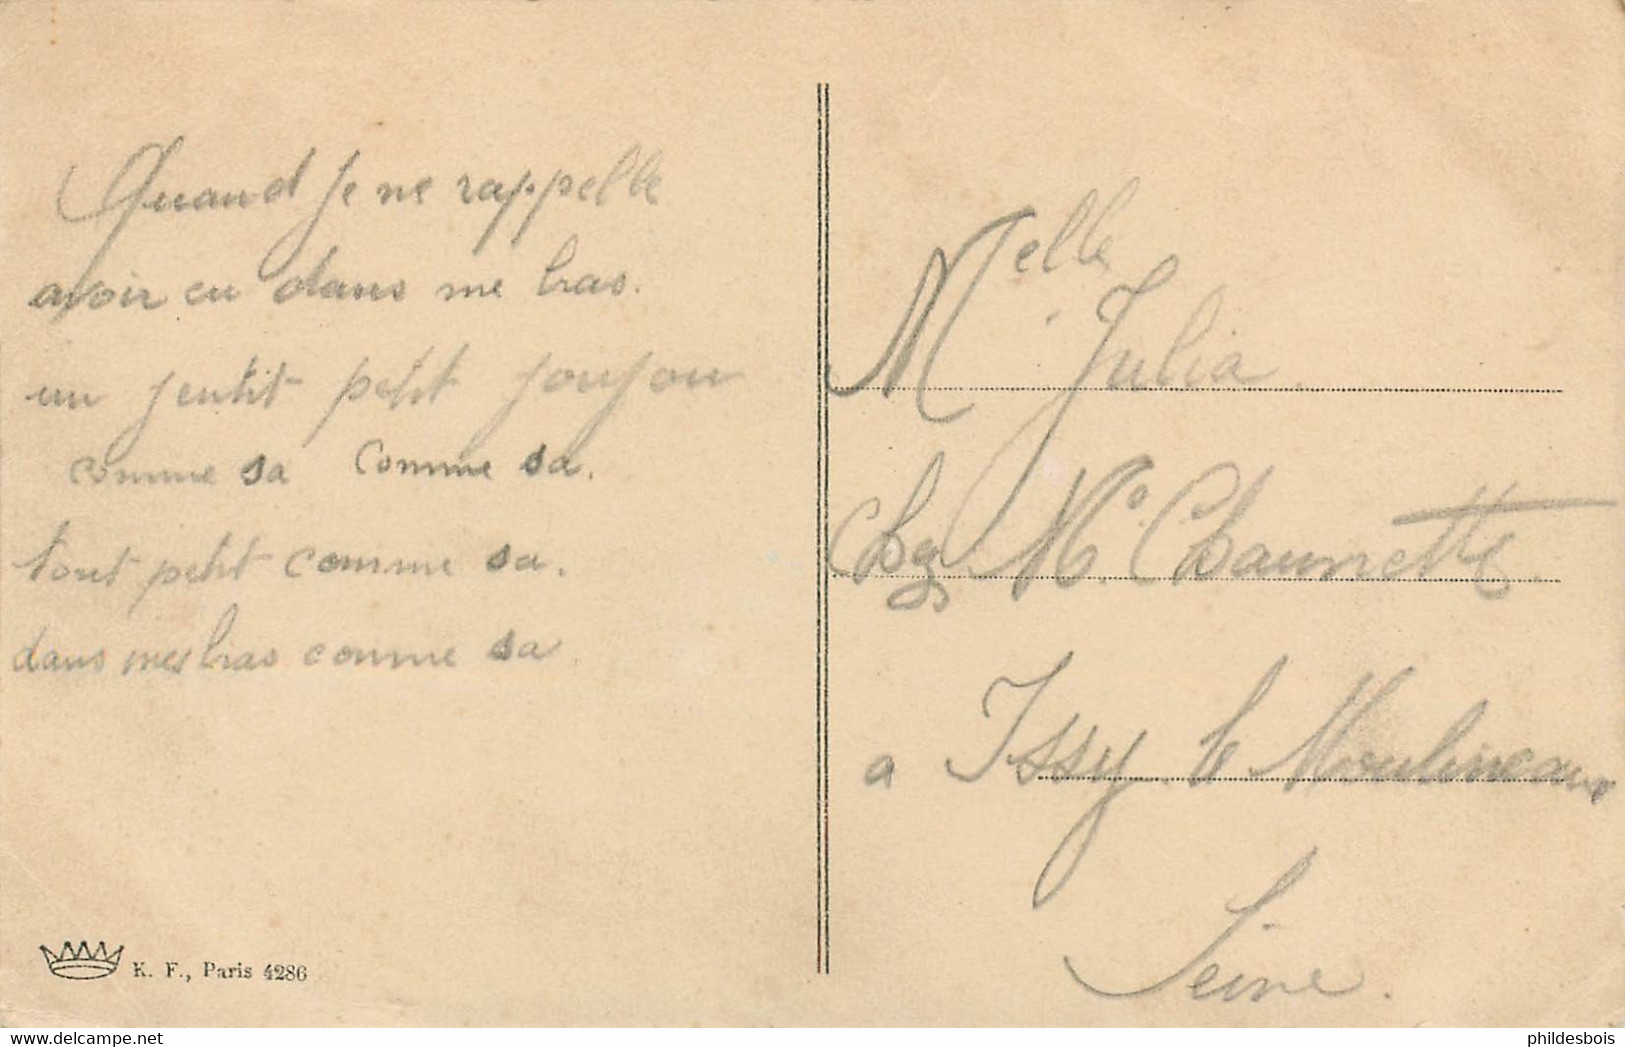 Quand je ne rappelle
avoir eu dans me bras.
un jentit petit joujou
comme sa comme sa.
tout petit comme sa.
dans mes bras comme sa.
K. F., Paris 4286
Melle Julia
Chez Mr Chaumette
a Issy le Moulineaux
Seine.
www.delcampe.net
phildesbois